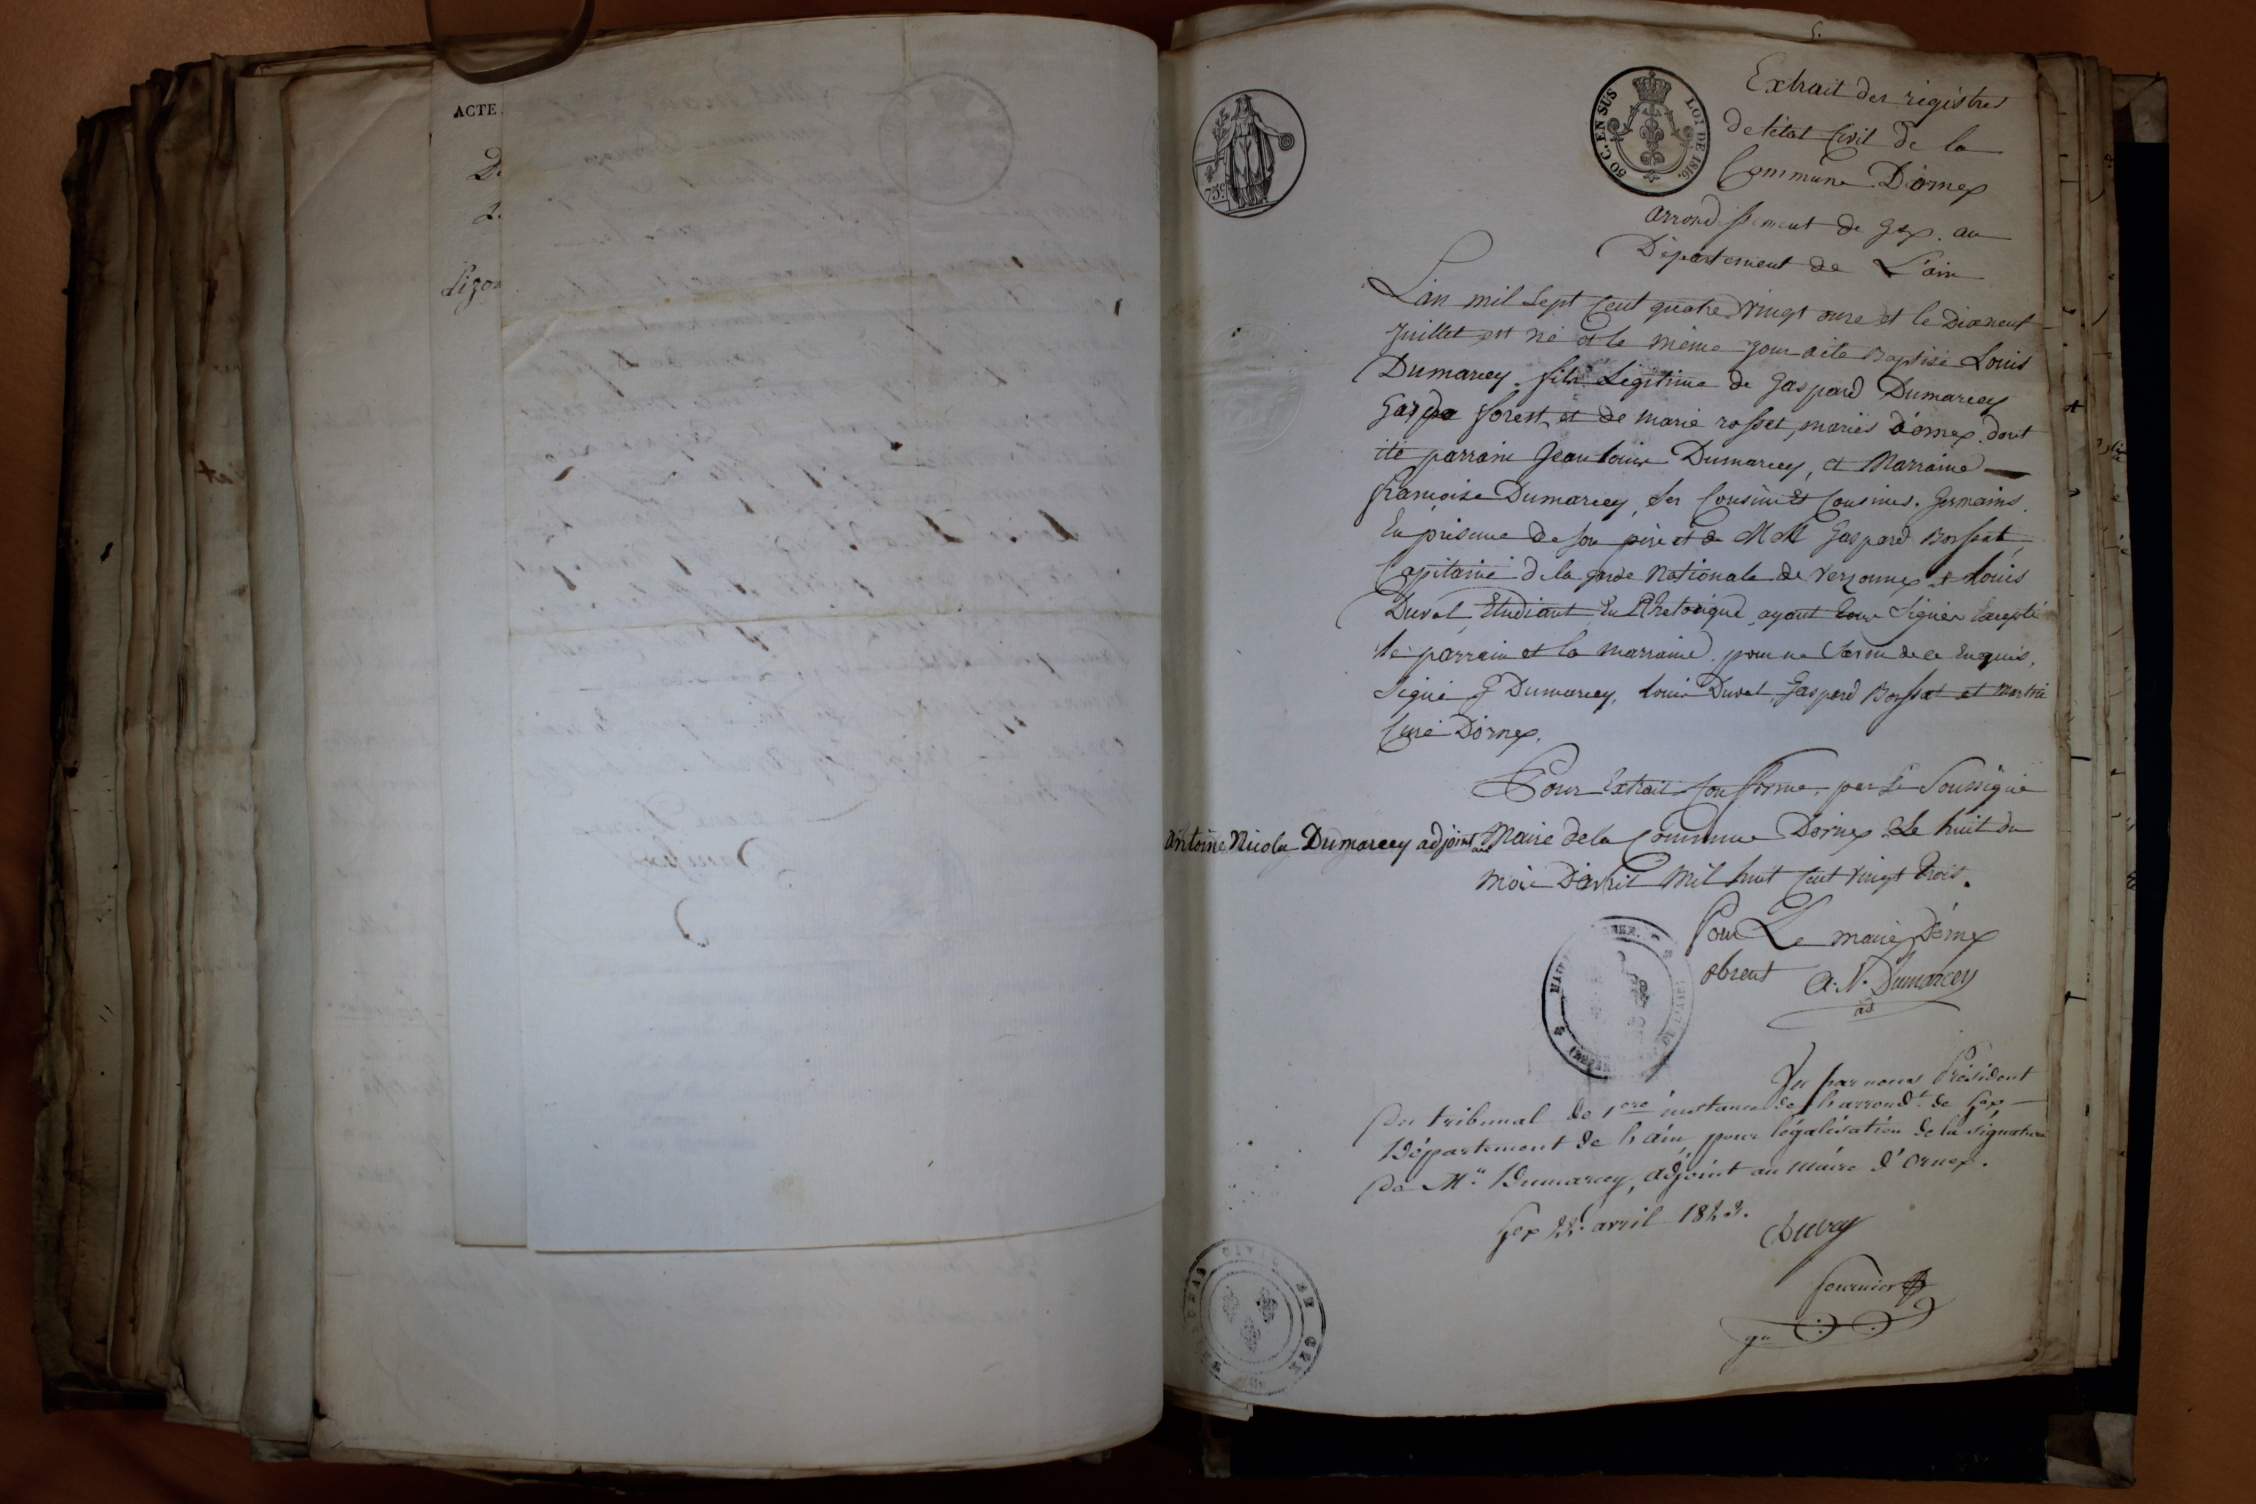 ACTE
50 C. EN SUS
LOI DE 1816.
75 c.
Extrait des registres
de létat Civil de la
Commune D'ornex
arrondissement de Gex. au
Département de L'ain
L'an mil Sept Cent quatre vingt onze et le Dixneuf
Juillet est né et le même jour aété Baptisé Louis
Dumarcey, fils Légitime de Gaspard Dumarcey
Garde forest, et de marie rosset, mariés d'ornex. dont
été parrain Jean Louis Dumarcey, et Marraine
françoise Dumarcey, ses Cousin et Cousines. Germains.
En présence de son père et de MM Gaspard Bossat,
Capitaine de la garde Nationale de Versonnex et Louis
Duval, Etudiant En Rhetorique, ayant tous Signés Excepté
le parrain et la marraine. pour ne Savoir de ce Enquis.
Signé G Dumarcey, Louis Duval, Gaspard Bossat et Martin
Curé D'ornex.
Pour Extrait Conforme, par Le Soussigné
Antoine Nicolas Dumarcey adjoint au Maire de la Commune D'ornex. Le huit du
mois D'avril Mil huit Cent vingt trois.
Pour Le maire D'ornex
absent A. N. Dumarcey
ad
Vu par nous Président
du tribunal de 1ere instance de l'arrondt. de Gex
Département de l'ain, pour légalisation de la signature
de Mr. Dumarcey, adjoint au maire d'ornex.
Gex 22. avril 1823.
fournier